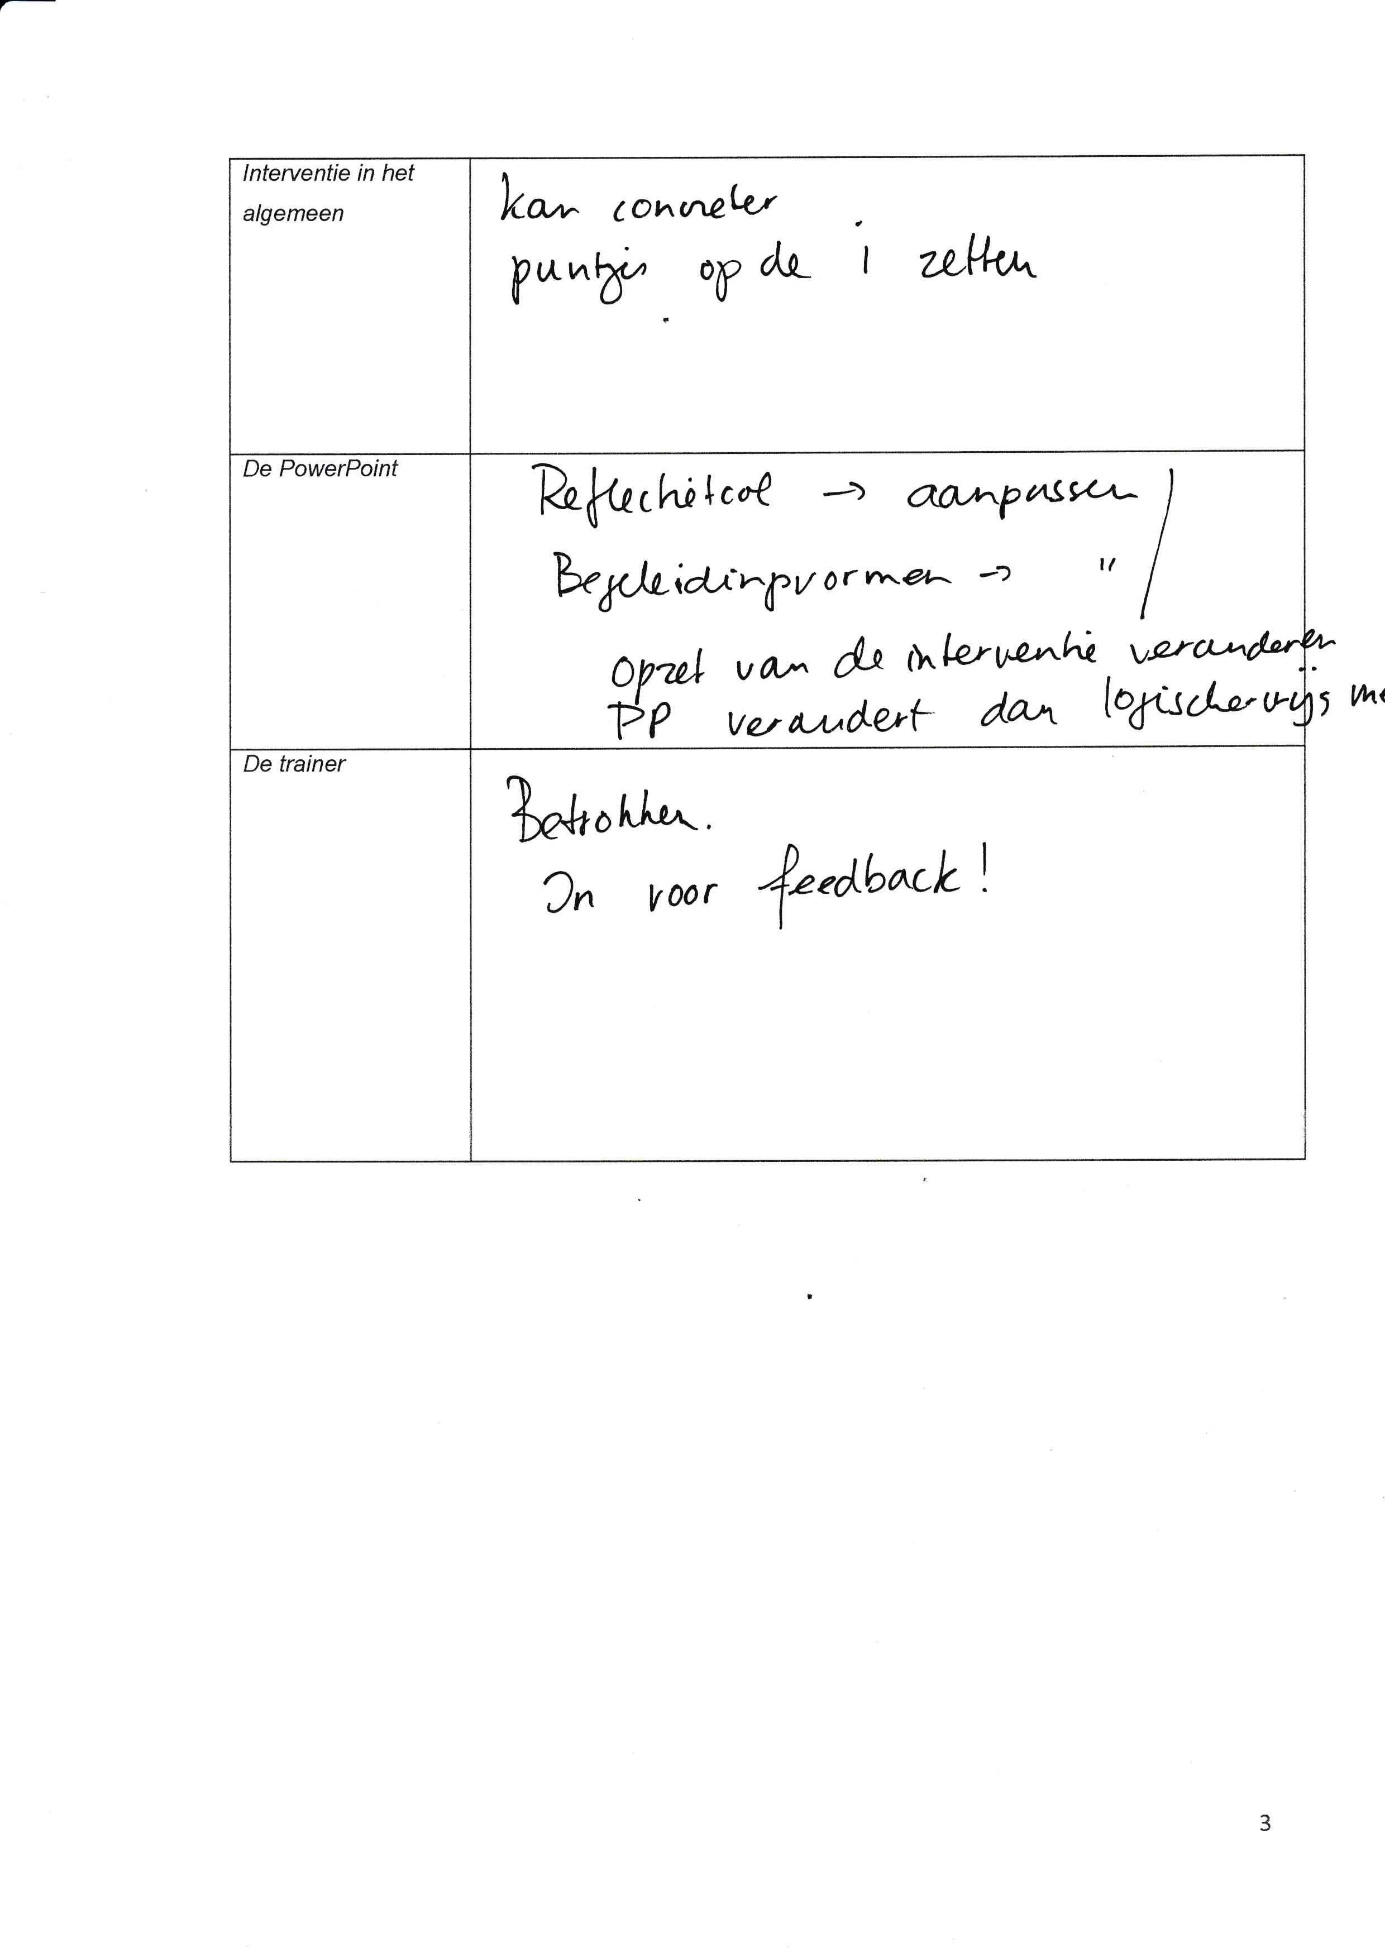 Interventie in het
algemeen
kan concreter
puntjes op de i zetten
De PowerPoint
Reflectietool → aanpassen
Begeleidingsvormen → "
opzet van de interventie veranderen
PP verandert dan logischerwijs me
De trainer
Betrokken.
In voor feedback!
3